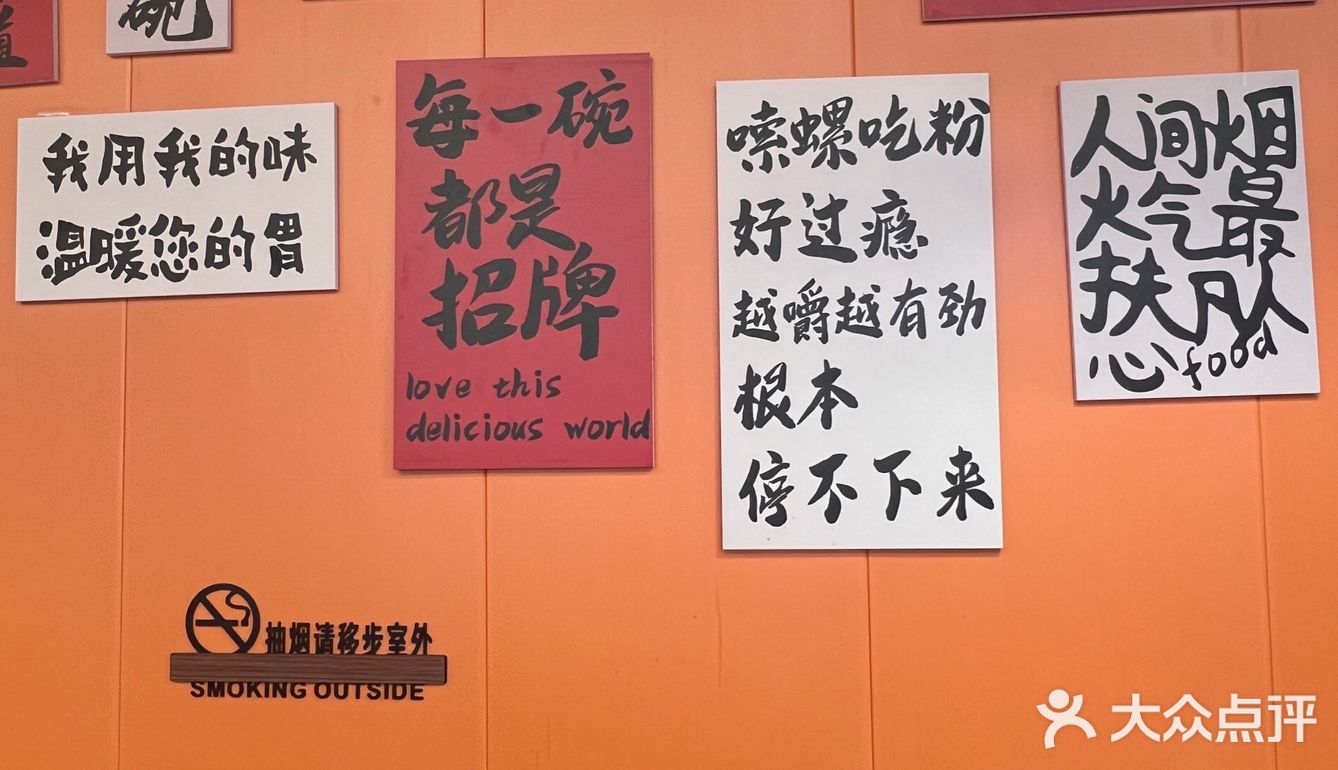 碗
我用我的味
温暖您的胃
每一碗
都是
招牌
love this
delicious world
嗦螺吃粉
好过瘾
越嚼越有劲
根本
停不下来
人间烟
火气最
扶凡人
心food
抽烟请移步室外
SMOKING OUTSIDE
大众点评